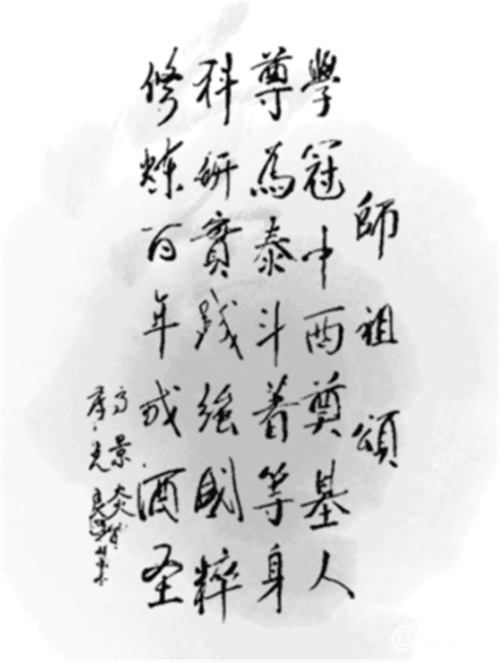 師祖頌
學冠中西奠基人
尊為泰斗著等身
科研實踐強國粹
修煉百年成酒圣
方景炎